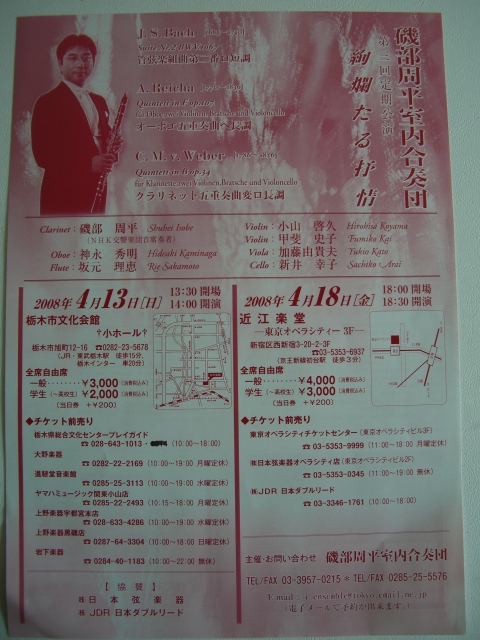 磯部周平室内合奏団
第三回定期公演
絢爛たる抒情
J. S. Bach
Suite Nr.2 BWV1067
管弦楽組曲第二番ロ短調
A. Reicha
Quintett in F op.107
für Oboe, zwei Violinen, Bratsche und Violoncello
オーボエ五重奏曲ヘ長調
C. M. v. Weber [1786~1826]
Quintett in B op.34
für Klarinette, zwei Violinen, Bratsche und Violoncello
クラリネット五重奏曲変ロ長調
Clarinet:磯部 周平 Shuhei Isobe
(NHK交響楽団首席奏者)
Oboe:神永 秀明 Hideaki Kaminaga
Flute:坂元 理恵 Rie Sakamoto
Violin:小山 啓久 Hirohisa Koyama
Violin:甲斐 史子 Fumiko Kai
Viola:加藤由貴夫 Yukio Kato
Cello:新井 幸子 Sachiko Arai
2008年4月13日[日] 13:30 開場
14:00 開演
栃木市文化会館
小ホール
栃木市旭町12-16 ☎0282-23-5678
(JR・東武栃木駅 徒歩15分、
栃木インター 車20分)
全席自由席
一般‥‥‥‥¥3,000(消費税込み)
学生(~高校生)¥2,000(消費税込み)
(当日券 +¥200)
◆チケット前売り
栃木県総合文化センタープレイガイド
☎028-643-1013 (10:00~18:00)
大野楽器
☎0282-22-2169 (10:00~19:00 月曜定休)
進駸堂音楽館
☎0285-25-3113 (10:00~19:00 水曜定休)
ヤマハミュージック関東小山店
☎0285-22-2493 (10:15~18:00 月曜定休)
上野楽器宇都宮本店
☎028-633-4286 (10:00~19:00 水曜定休)
上野楽器黒磯店
☎0287-64-3304 (10:00~18:00 日曜定休)
岩下楽器
☎0284-40-1183 (10:00~22:00 無休)
【協賛】
㈱日本弦楽器
㈱JDR 日本ダブルリード
2008年4月18日[金] 18:00 開場
18:30 開演
近江楽堂
―東京オペラシティー 3F―
新宿区西新宿3-20-2-3F
☎03-5353-6937
(京王新線初台駅 徒歩3分)
全席自由席
一般‥‥‥‥¥4,000(消費税込み)
学生(~高校生)¥3,000(消費税込み)
(当日券 +¥200)
◆チケット前売り
東京オペラシティチケットセンター(東京オペラシティビル3F)
☎03-5353-9999 (11:00~19:00 月曜定休)
㈱日本弦楽器オペラシティ店(東京オペラシティビル2F)
☎03-5353-0345 (11:00~19:00 無休)
㈱JDR 日本ダブルリード
☎03-3346-1761 (10:00~18:00)
主催・お問い合わせ 磯部周平室内合奏団
TEL/FAX 03-3957-0215 * TEL/FAX 0285-25-5576
(電子メールで予約が出来ます。)